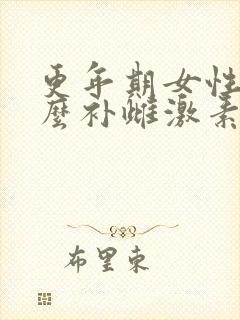 更年期女性
麼补雌激素
布里東